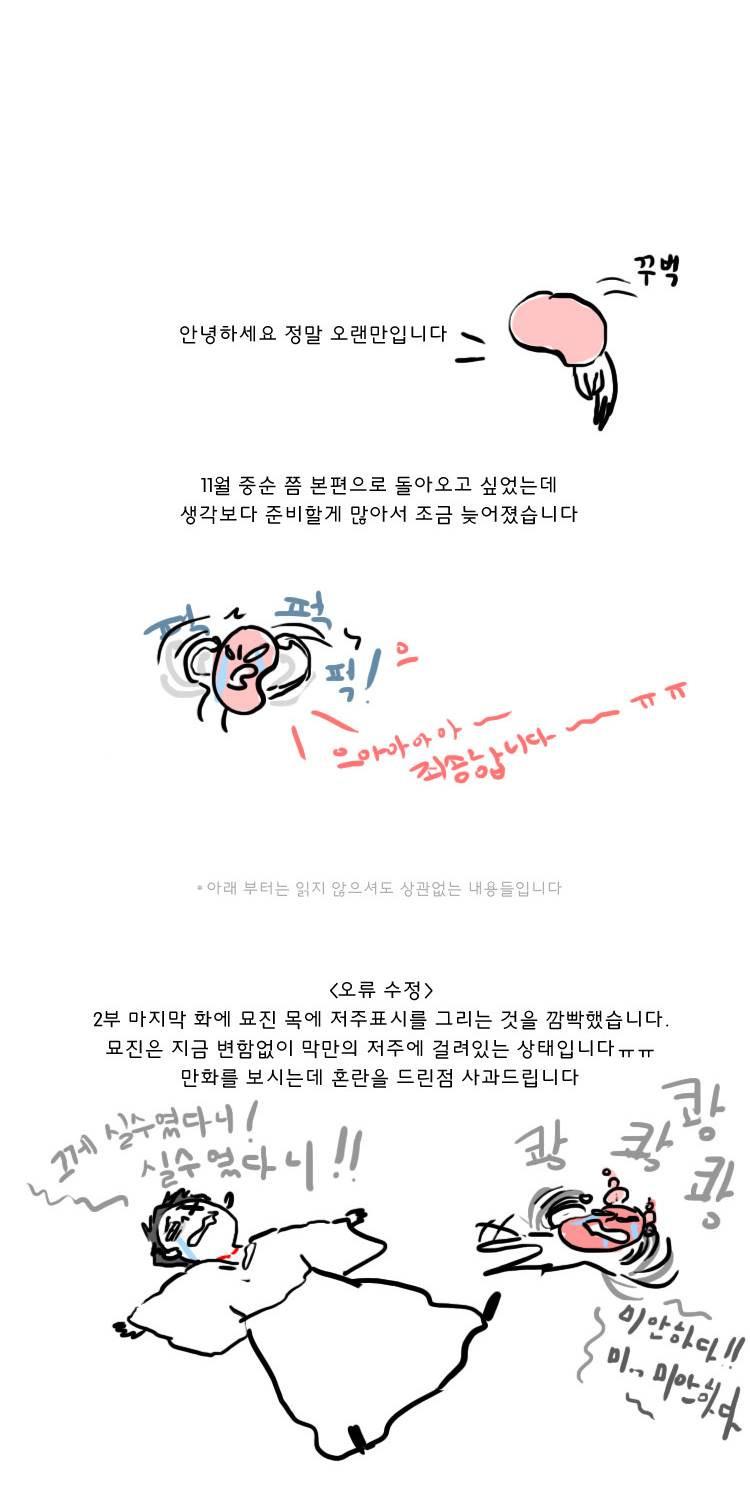 꾸벅
안녕하세요 정말 오랜만입니다
11월 중순 쯤 본편으로 돌아오고 싶었는데
생각보다 준비할게 많아서 조금 늦어졌습니다
퍽
퍽
퍽!
으
으아아아아
죄송합니다 ㅠㅠ
*아래 부터는 읽지 않으셔도 상관없는 내용들입니다
<오류 수정>
2부 마지막 화에 묘진 목에 저주표시를 그리는 것을 깜빡했습니다.
묘진은 지금 변함없이 막만의 저주에 걸려있는 상태입니다ㅠㅠ
만화를 보시는데 혼란을 드린점 사과드립니다
그게 실수였다니!
실수였다니!!
쾅
쾅
쾅
쾅
미안하다!!
미.. 미안하다